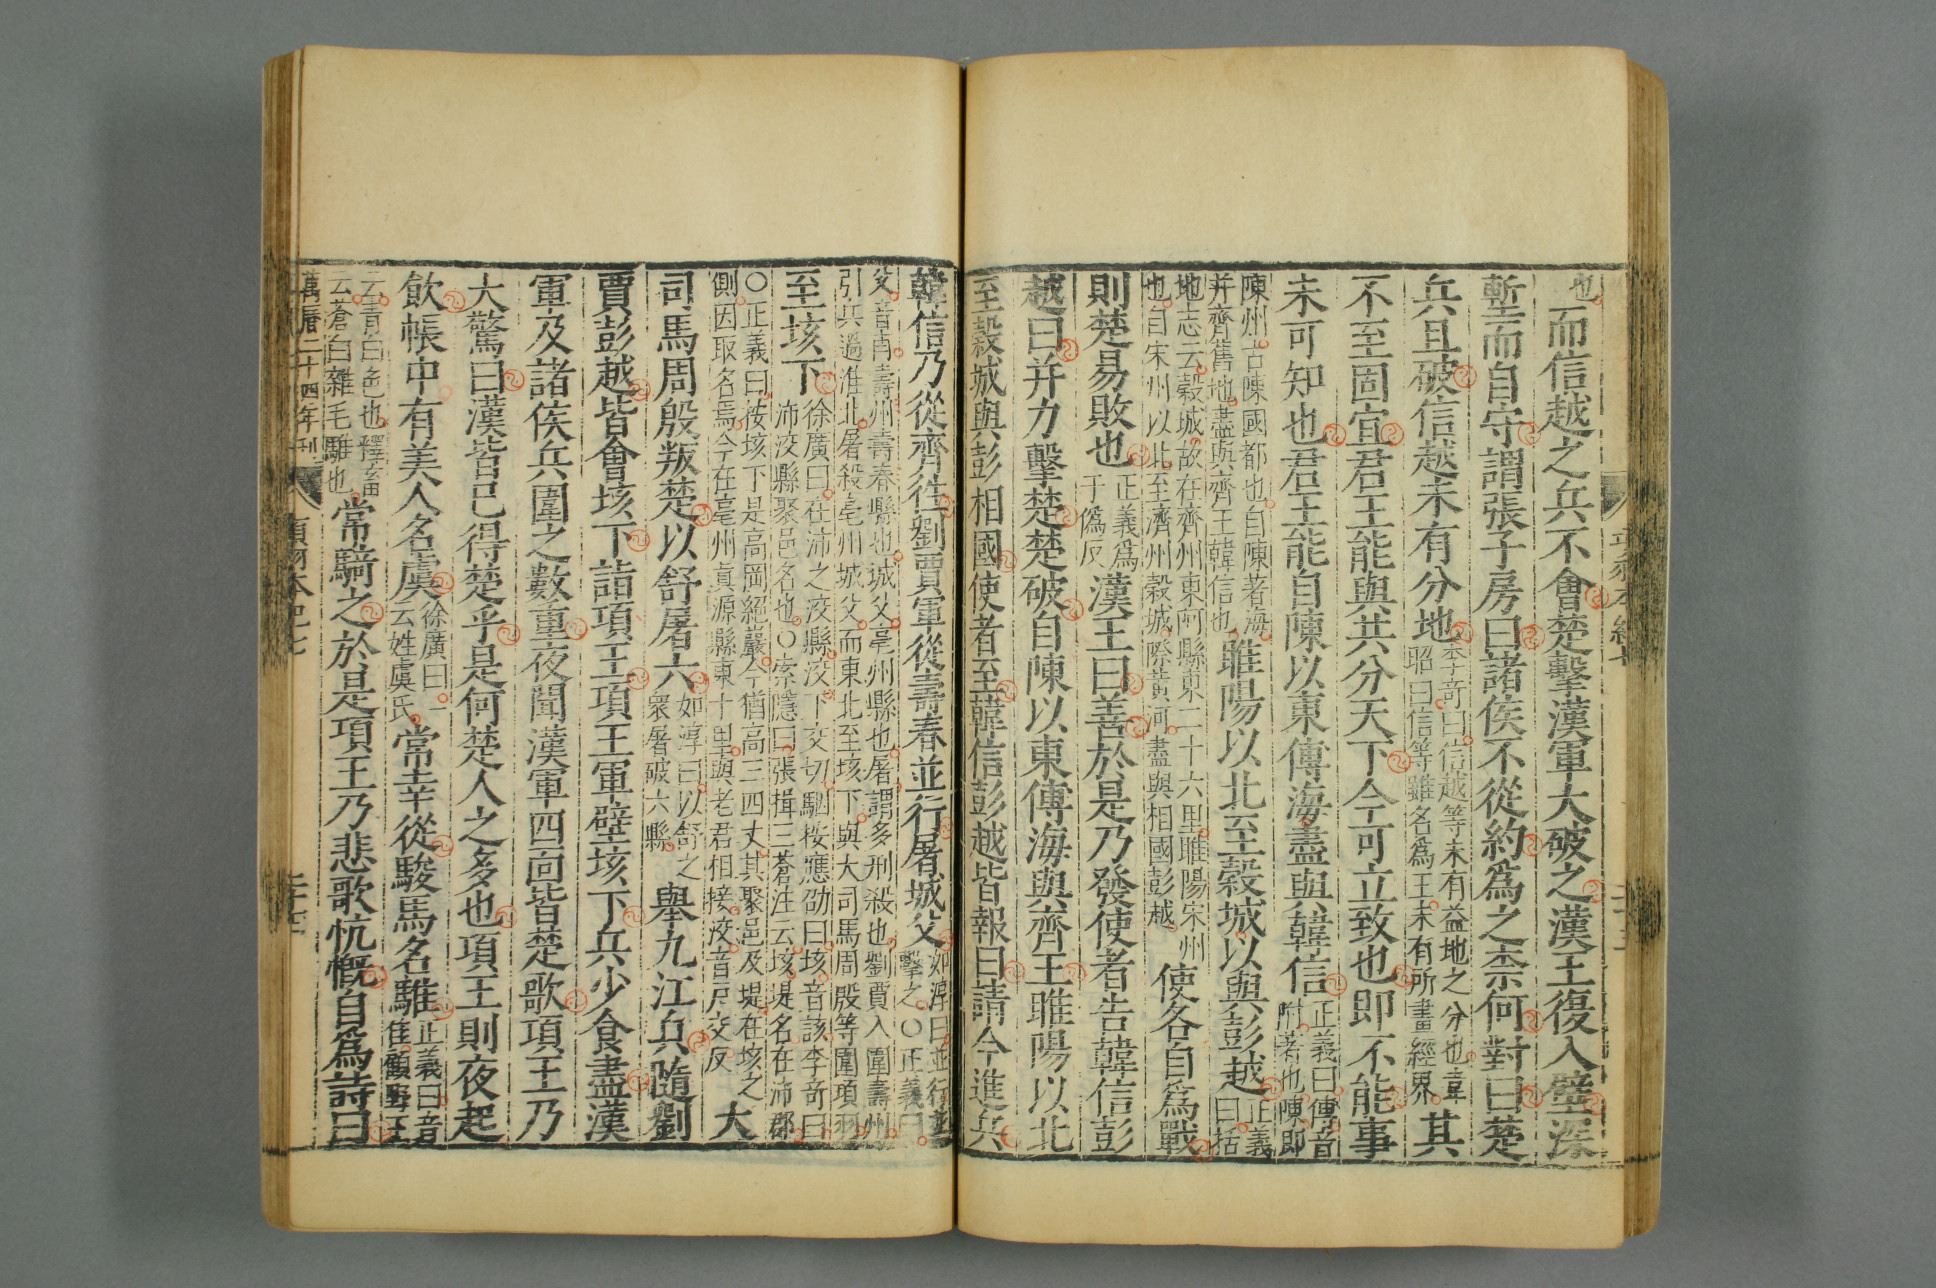 也而信越之兵不會楚擊漢軍大破之漢王復入壁深
塹而自守謂張子房曰諸侯不從約爲之柰何對曰楚
兵且破信越未有分地李奇曰信越等未有益地之分也韋昭曰信等雖名爲王未有所畫經界其
不至固宜君王能與共分天下今可立致也即不能事
未可知也君王能自陳以東傅海盡與韓信正義曰傅音附著也陳即
陳州古陳國都也自陳著海并齊舊地盡與齊王韓信也睢陽以北至穀城以與彭越正義曰括
地志云穀城故在齊州東阿縣東二十六里睢陽宋州也自宋州以北至濟州穀城際黃河盡與相國彭越使各自爲戰
則楚易敗也正義爲于僞反漢王曰善於是乃發使者告韓信彭
越曰并力擊楚楚破自陳以東傅海與齊王睢陽以北
至穀城與彭相國使者至韓信彭越皆報曰請今進兵
韓信乃從齊往劉賈軍從壽春並行屠城父如淳曰並行並擊之〇正義曰
父音甫壽州壽春縣也城父亳州縣也屠謂多刑殺也劉賈入圍壽州引兵過淮北屠殺亳州城父而東北至垓下與大司馬周殷等圍項羽
至垓下徐廣曰在沛之洨縣洨下交切駰按應劭曰垓音該李奇曰沛洨縣聚邑名也〇索隱曰張揖三蒼注云垓堤名在沛郡
〇正義曰按垓下是高岡絕巖今猶高三四丈其聚邑及堤在垓之側因取名焉今在亳州真源縣東十里與老君相接洨音戶交反大
司馬周殷叛楚以舒屠六如淳曰以舒之衆屠破六縣舉九江兵隨劉
賈彭越皆會垓下詣項王項王軍壁垓下兵少食盡漢
軍及諸侯兵圍之數重夜聞漢軍四面皆楚歌項王乃
大驚曰漢皆已得楚乎是何楚人之多也項王則夜起
飲帳中有美人名虞徐廣曰一云姓虞氏常幸從駿馬名騅正義曰音隹顧野王
云青白色也釋畜云蒼白雜毛騅也常騎之於是項王乃悲歌忼慨自爲詩曰
萬曆二十四年刊
項羽本紀七